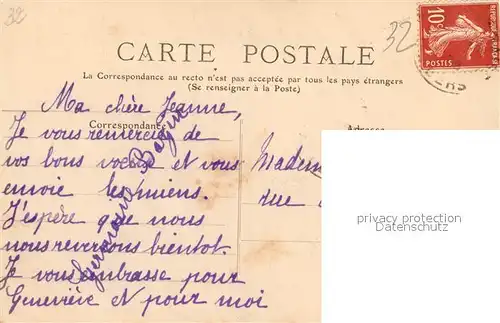 32
32
10c
POSTES
CARTE POSTALE
La Correspondance au recto n'est pas acceptée par tous les pays étrangers
(Se renseigner à la Poste)
Ma chère Jeanne,
Correspondance
Adresse
Je vous remercie de
vos bons voeux et vous
envoie les miens.
J'espère que nous
nous reverrons bientôt.
Je vous embrasse pour
Geneviève et pour moi
Germaine
Madem
rue
privacy protection